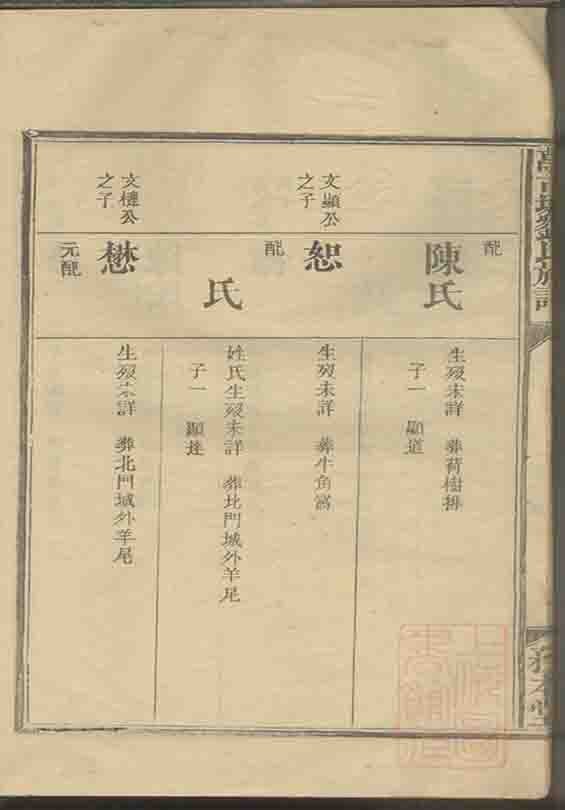 配
陳氏
生歿未詳　葬荷樹排
子一　顯道
文顯公
之子
恕
生歿未詳　葬牛角窩
配
氏
姓氏生歿未詳　葬北門城外羊尾
子一　顯達
文槤公
之子
懋
生歿未詳　葬北門城外羊尾
元配